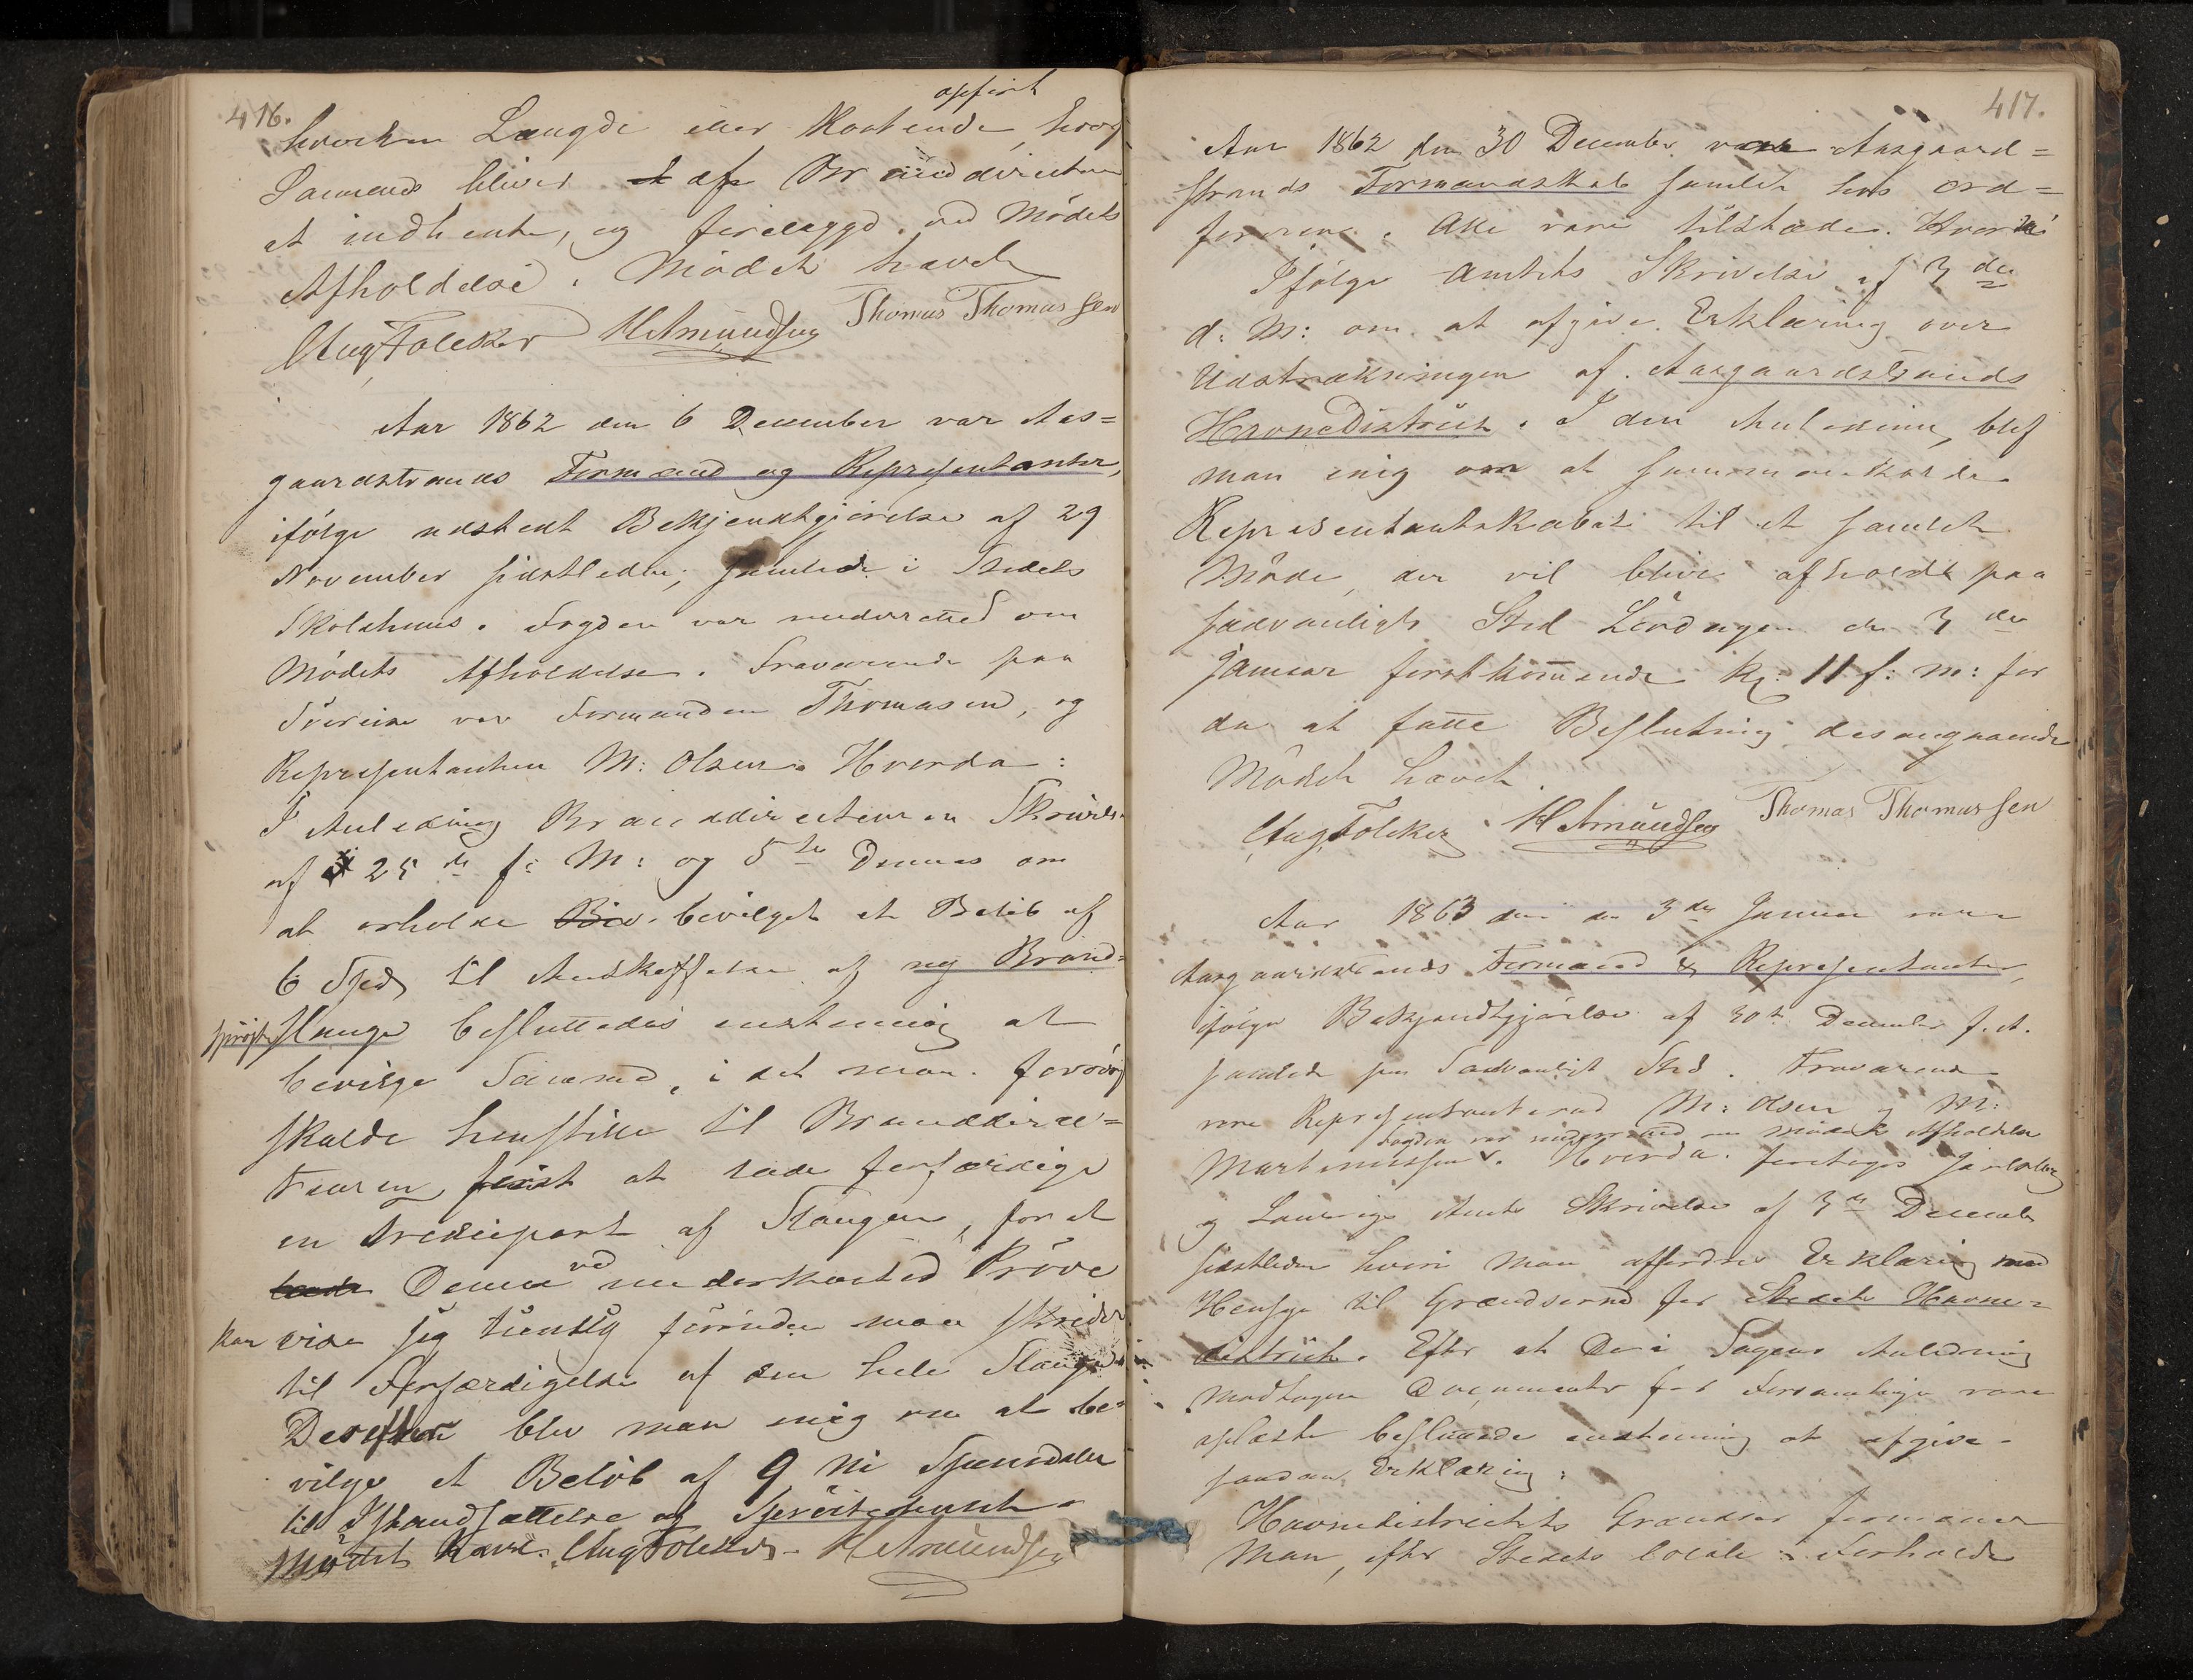 416.
opfört
hverken Længde eller Kostende, hvor
Saameds bliver af Branddirecteuren
at indhente, og forelagt ved Mödets
Afholdelse. Mödet hævet
Aug Foleker HAmundsen Thomas Thomassen
Aar 1862 den 6 December var Aas=
gaardstrands Formænd og Repræsentanter,
ifölge udstedt Bekjendtgjörelse af 29
November sidstleden, samlede i Stedets
Skolehuus. Fogden var underrettet om
Mödets Afholdelse. Fraværende paa
Söreise var Formanden Thomasen, og
Repræsentanten M: Olsen. Hvorda:
I Anledning Branddirecteuren Skrivelse
af 25 de f: M: og 5te Dennes om
at erholde Bev. bevilget et Belöb af
6 Spd til Anskaffelse af ny Brand-
spröjte slange besluttedes enstemmig at
bevilge Samme, i det man forövrigt
skulde henstille til Branddirec=
teuren, först at lade forfærdige
en Trediepart af Slangen, for at
Denne ved underkastet Pröve
kan vise sig tienlig förinden man skrider
til Forfærdigelse af den hele Slange
Derefter blev man enig om at be-
vilge et Belöb af 9 Ni Speciedaler
til Istandsættelse af Spröitehuset.
Mödet hævet. Aug Foleker HAmundsen
417.
Aar 1862 den 30 December var Aasgaard=
strands Formandskab samlet hos Ord=
föreren. Alle vare tilstæde. Hvorda
Ifölge Amtets Skrivelse af 3 die
d: M: om at afgive Erklæring over
Udstrækningen af Aasgaardstrands
Havnedistrict. I den Anledning blef
man enig om at sammenkalde
Repræsentantskabet til et samlet
Möde, der vil blive afholdt paa
sædvanligt Sted Lördagen den 3 die
Januar förstkommende Kl: 11 f: m: for
da at fatte Beslutning desangaaende
Mödet hævet.
Aug Foleker HAmundsen Thomas Thomassen
Aar 1863 den 3die Januar vare
Aasgaardstrands Formænd & Repræsentanter,
ifölge Bekjendtgjörelse af 30te December f. A.
samlede paa Sædvanligt Sted. Fraværende
vare Repræsentanterne M: Olsen og M:
Fogden var underrettet om Mödets Afholdelse
Martinussen. Hvorda. foretoges Jarlsberg
og Laurvigs Amts Skrivelse af 3die December
sidstleden hvori man affordres Erklæring med
Hensyn til Grændserne for Stedets Havne-
district. Efter at De i Sagens Anledning
modtagne Documenter for Forsamlingen vare
oplæste besluttede enstemmig at afgive
saadan Erklæring:
Havnedistrictets Grændser formener
Man, efter Stedets locale Forholde